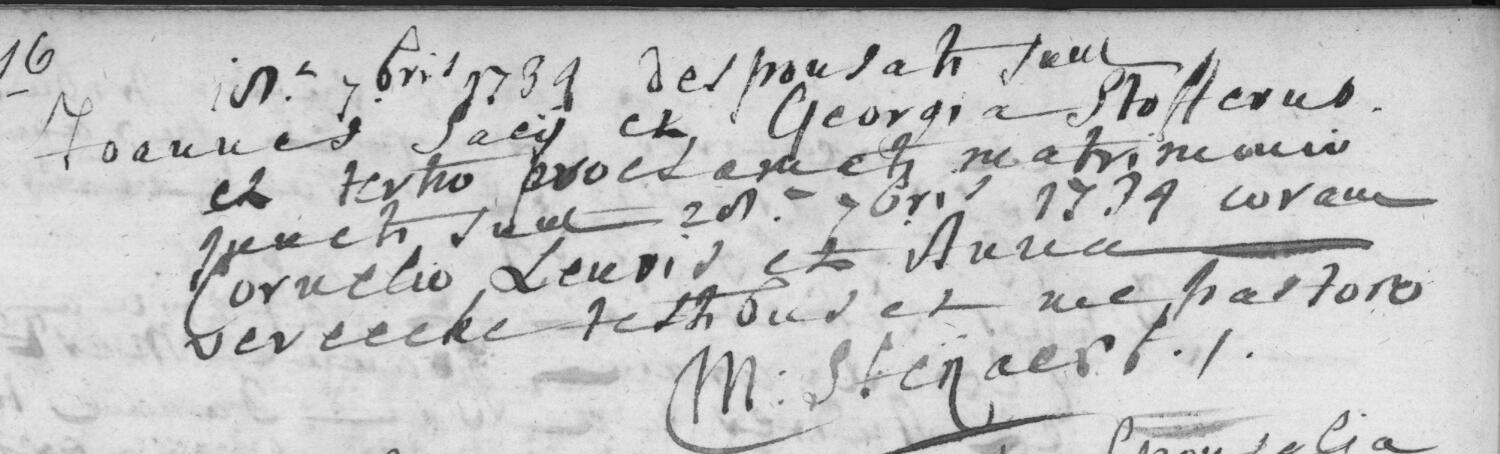 16
10.a 7bris 1739 desponsati sunt
Joannes Saeij et Georgia Stofferus.
et tertio proclamati matrimonio
juncti sunt 28.a 7bris 1739 coram
Cornelio Leuris et Anna
vereecke testibus et me pastore
M: Steijaert ./.
Sponsalia